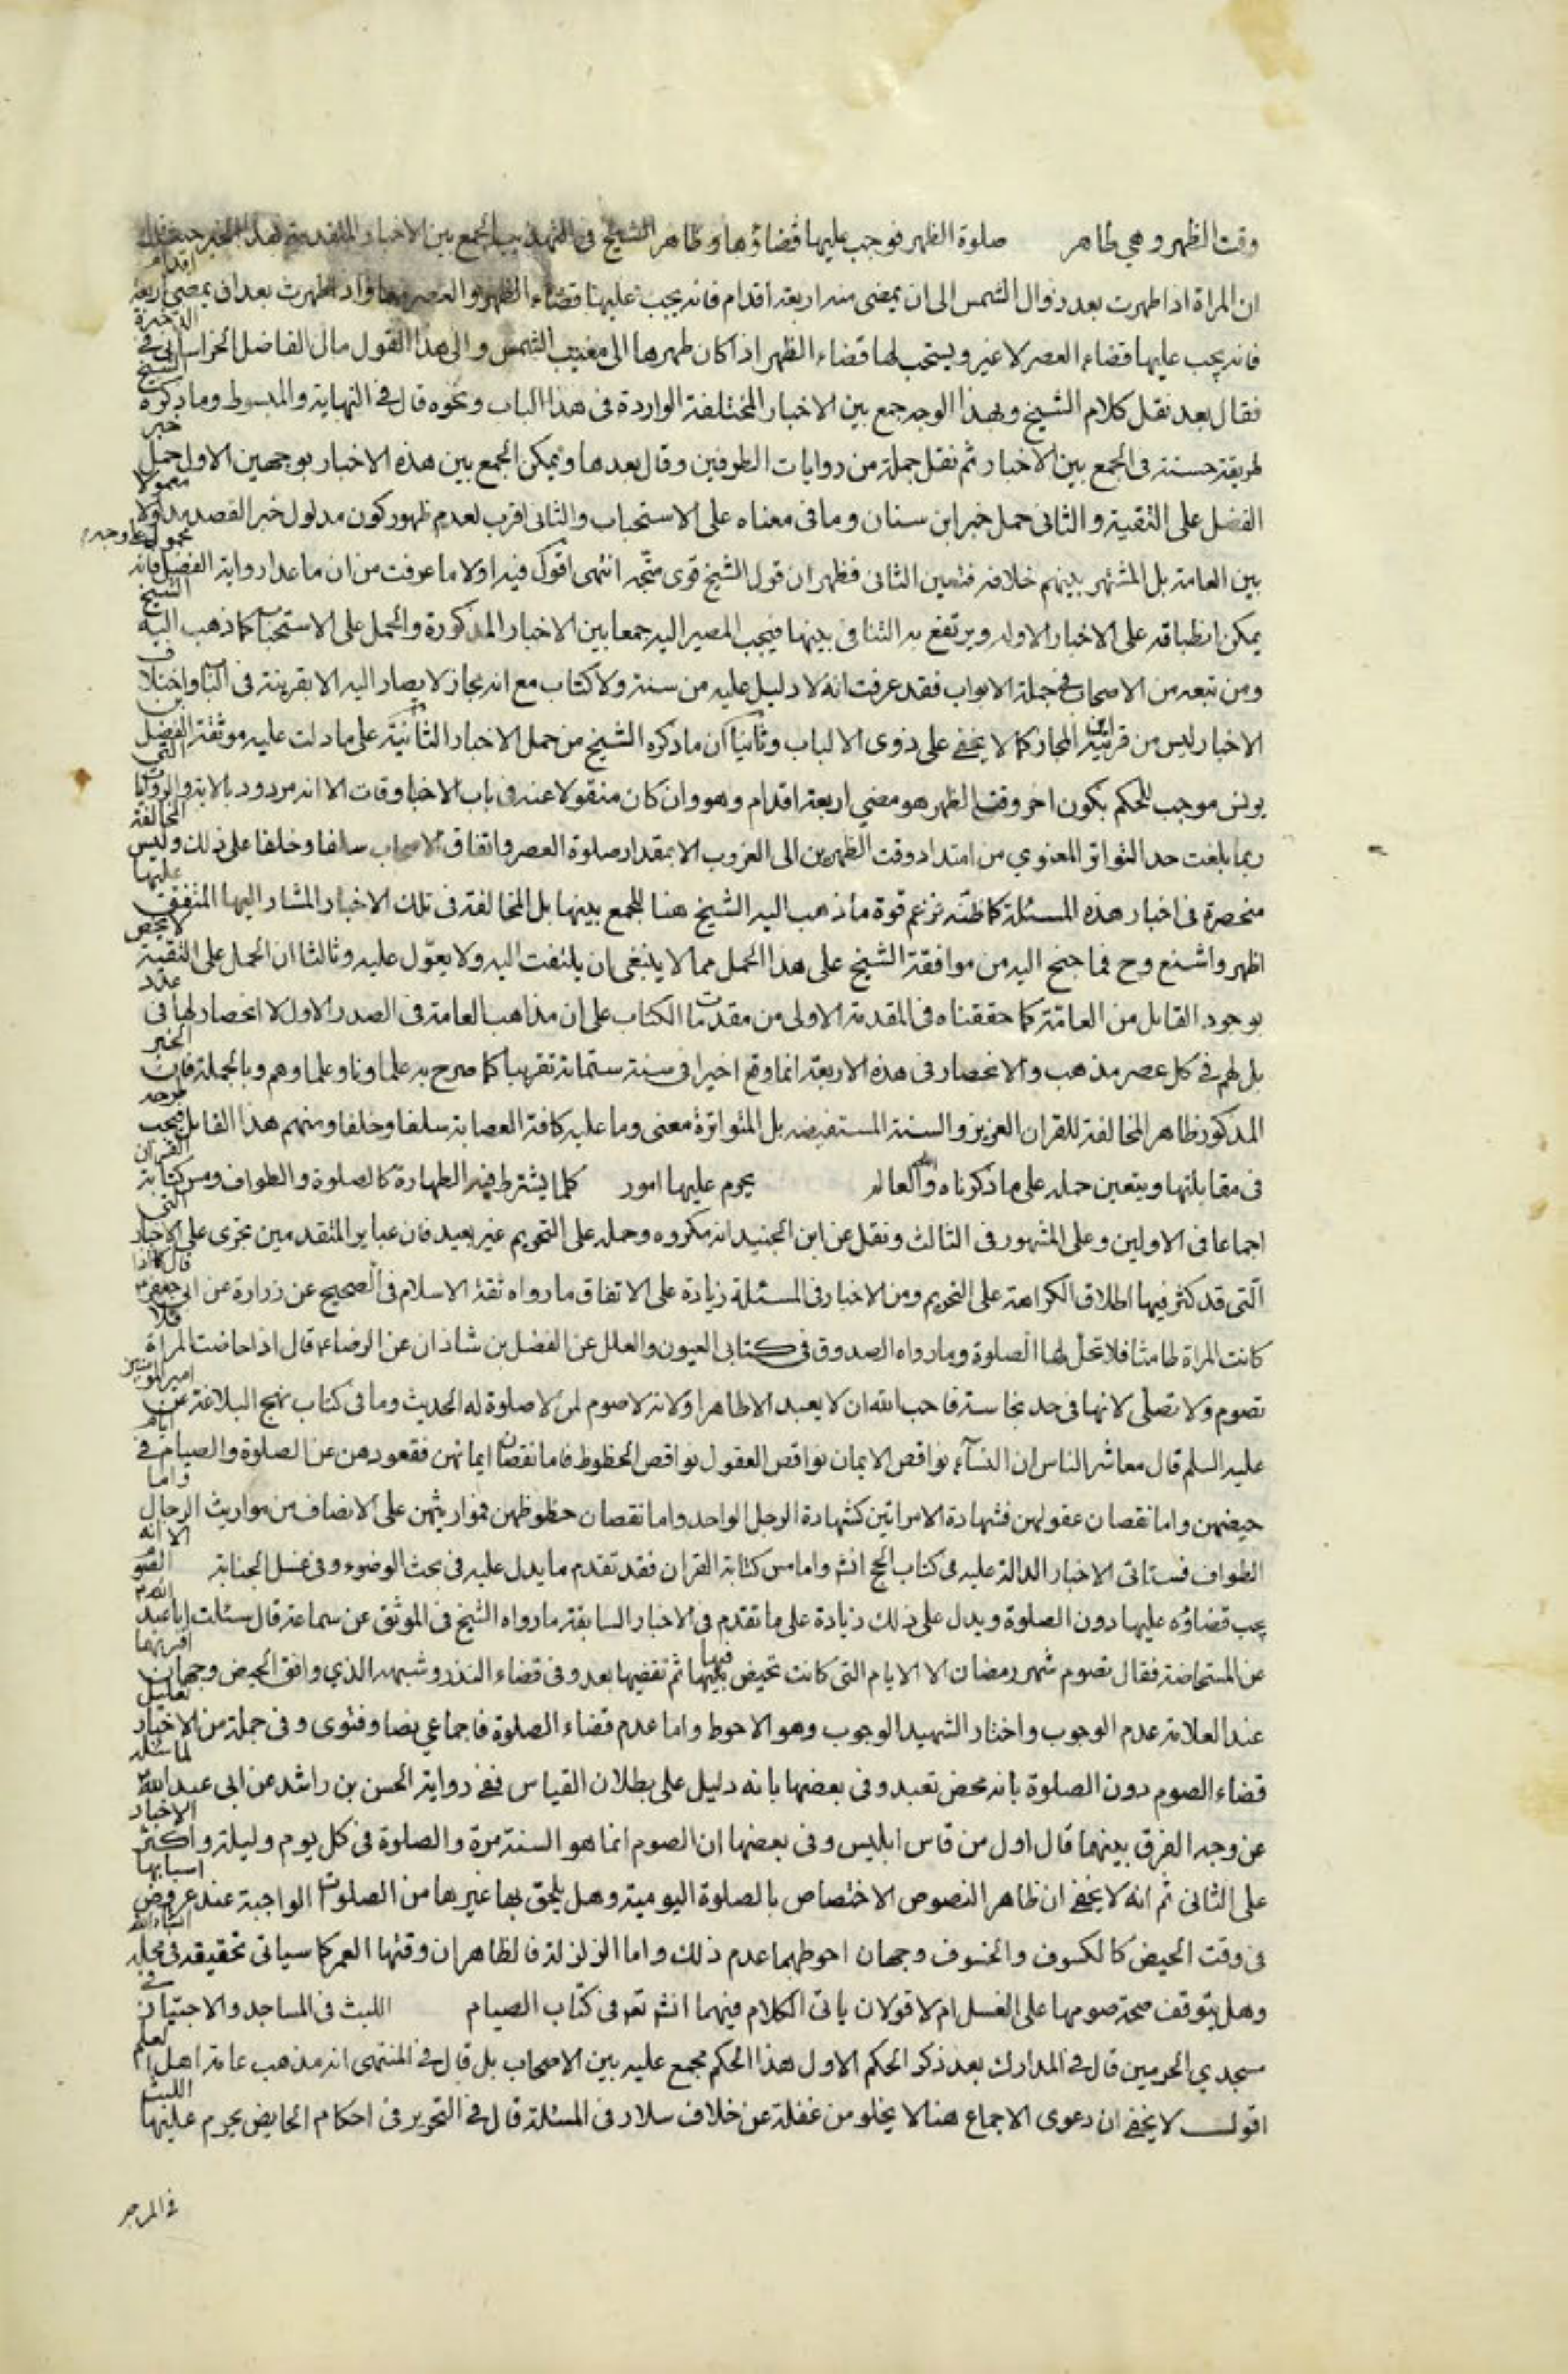 وقت الظهر وهي طاهر صلوة الظهر فوجب عليها قضاؤها وظاهر الشيخ فى التهذيب الجمع بين الاخبار المتقدمة بهذا الخبر حيث قال
ان المراة اذا طهرت بعد زوال الشمس الى ان يمضى منه اربعة اقدام فانه يجب عليها قضاء الظهر والعصر معا واذا طهرت بعد ان يمضى اربعة اقدام
فانه يجب عليها قضاء العصر لا غير ويستحب لها قضاء الظهر اذا كان طهرها الى مغيب الشمس والى هذا القول مال الفاضل الخراسانى فى الذخيرة
فقال بعد نقل كلام الشيخ وبهذا الوجه جمع بين الاخبار المختلفة الواردة فى هذا الباب ونحوه قال فى النهاية والمبسوط وما ذكره الشيخ
طريقة حسنة فى الجمع بين الاخبار ثم نقل جملة من روايات الطرفين وقال بعدها ويمكن الجمع بين هذه الاخبار بوجهين الاول حمل خبر
الفضل على التقية والثانى حمل خبر ابن سنان وما فى معناه على الاستحباب والثانى اقرب لعدم ظهور كون مدلول خبر الفضل متداولا معمولا
بين العامة بل المشتهر بينهم خلافه فتعين الثانى فظهر ان قول الشيخ قوى متجه انتهى اقول فيه اولا ما عرفت من ان ما عدا رواية الفضل فانه محمول على وجه
يمكن انطباقه على الاخبار الاوله ويرتفع به التنافى بينها فيجب المصير اليه جمعا بين الاخبار المذكورة والحمل على الاستحباب كما ذهب اليه الشيخ
ومن تبعه من الاصحاب فى جملة الابواب فقد عرفت انه لا دليل عليه من سنة ولا كتاب مع انه مجاز لا يصار اليه الا بقرينة فى الباب واختلاف
الاخبار ليس من قرائن المجاز كما لا يخفى على ذوى الالباب وثانيا ان ما ذكره الشيخ من حمل الاخبار الثانية على ما دلت عليه موثقة الفضل بن
يونس موجب للحكم بكون اخر وقت الظهر هو مضي اربعة اقدام وهو وان كان منقولا عنه فى باب الاوقات الا انه مردود بالاية والروايات التى
ربما بلغت حد التواتر المعنوي من امتداد وقت الظهرين الى الغروب الا بمقدار صلوة العصر واتفاق الاصحاب سلفا وخلفا على ذلك وليس المخالفة
منحصرة فى اخبار هذه المسئلة كما ظنه فزعم قوة ما ذهب اليه الشيخ هنا للجمع بينها بل المخالفة فى تلك الاخبار المشار اليها المتفق عليها
اظهر واشنع وح فما جنح اليه من موافقة الشيخ على هذا الحمل مما لا ينبغى ان يلتفت اليه ولا يعوّل عليه وثالثا ان الحمل على التقية لا يختص
بوجود القايل من العامة كما حققناه فى المقدمة الاولى من مقدمات الكتاب على ان مذاهب العامة فى الصدر الاول لا انحصار لها فى عدد
بل لهم فى كل عصر مذهب والانحصار فى هذه الاربعة انما وقع اخيرا فى سنة ستمائة تقريبا كما صرح به علماونا وعلماوهم وبالجملة فان الخبر
المذكور ظاهر المخالفة للقران العزيز والسنة المستفيضه بل المتواترة معنى وما عليه كافة العصابة سلفا وخلفا ومنهم هذا القايل فيجب طرحه
فى مقابلتها ويتعين حمله على ما ذكرناه والله العالم يحرم عليها امور كلما يشترط فيه الطهارة كالصلوة والطواف ومس كتابة القران
اجماعا فى الاولين وعلى المشهور فى الثالث ونقل عن ابن الجنيد انه مكروه وحمله على التحريم غير بعيد فان عباير المتقدمين تجرى على الاخبار التى
الّتى قد كثر فيها اطلاق الكراهة على التحريم ومن الاخبار فى المسئلة زيادة على الاتفاق ما رواه ثقة الاسلام فى الصحيح عن زرارة عن ابى جعفر قال اذا
كانت المراة طامثا فلا تحل لها الصلوة وما رواه الصدوق فى كتابى العيون والعلل عن الفضل بن شاذان عن الرضا ع قال اذا حاضت المراة فلا
تصوم ولا تصلى لانها فى حد نجاسة فاحب الله ان لا يعبد الا طاهرا ولانه لا صوم لمن لا صلوة له الحديث وما فى كتاب نهج البلاغة عن امير المومنين
عليه السلم قال معاشر الناس ان النسآء نواقص الايمان نواقص العقول نواقص الحظوظ فاما نقصان ايمانهن فقعودهن عن الصلوة والصيام فى ايام
حيضهن واما نقصان عقولهن فشهادة الامراتين كشهادة الرجل الواحد واما نقصان حظوظهن فمواريثهن على الانصاف من مواريث الرجال واما
الطواف فستاتى الاخبار الدالة عليه فى كتاب الحج انش واما مس كتابة القران فقد تقدم ما يدل عليه فى بحث الوضوء وفى غسل الجنابة الصوم الا انه
يجب قضاؤه عليها دون الصلوة ويدل على ذلك زيادة على ما تقدم فى الاخبار السابقة ما رواه الشيخ فى الموثق عن سماعة قال سئلت ابا عبد الله
عن المستحاضة فقال تصوم شهر رمضان الا الايام التى كانت تحيض فيها ثم تقضيها بعد وفى قضاء النذر وشبهه الذي وافق الحيض وجهان اقربهما
عند العلامة عدم الوجوب واختار الشهيد الوجوب وهو الاحوط واما عدم قضاء الصلوة فاجماعي نصا وفتوى وفى جملة من الاخبار تعليل
قضاء الصوم دون الصلوة بانه محض تعبد وفى بعضها بانه دليل على بطلان القياس ففى رواية الحسن بن راشد عن ابى عبد الله لما سئله
عن وجه الفرق بينهما قال اول من قاس ابليس وفى بعضها ان الصوم انما هو السنة مرة والصلوة فى كل يوم وليلة واكثر الاخبار
على الثانى ثم انه لا يخفى ان ظاهر النصوص الاختصاص بالصلوة اليومية وهل يلحق بها غيرها من الصلوات الواجبة عند عروض اسبابها
فى وقت الحيض كالكسوف والخسوف وجهان احوطهما عدم ذلك واما الزلزلة فالظاهر ان وقتها العمر كما سياتى تحقيقه فى محله انشاء الله
وهل يتوقف صحة صومها على الغسل ام لا قولان ياتى الكلام فيهما انش تعه فى كتاب الصيام اللبث فى المساجد والاجتياز فى
مسجدي الحرمين قال فى المدارك بعد ذكر الحكم الاول هذا الحكم مجمع عليه بين الاصحاب بل قال فى المنتهى انه مذهب عامة اهل العلم
اقول لا يخفى ان دعوى الاجماع هنا لا يخلو من غفلة عن خلاف سلار فى المسئلة قال فى التحرير فى احكام الحايض يحرم عليها اللبث